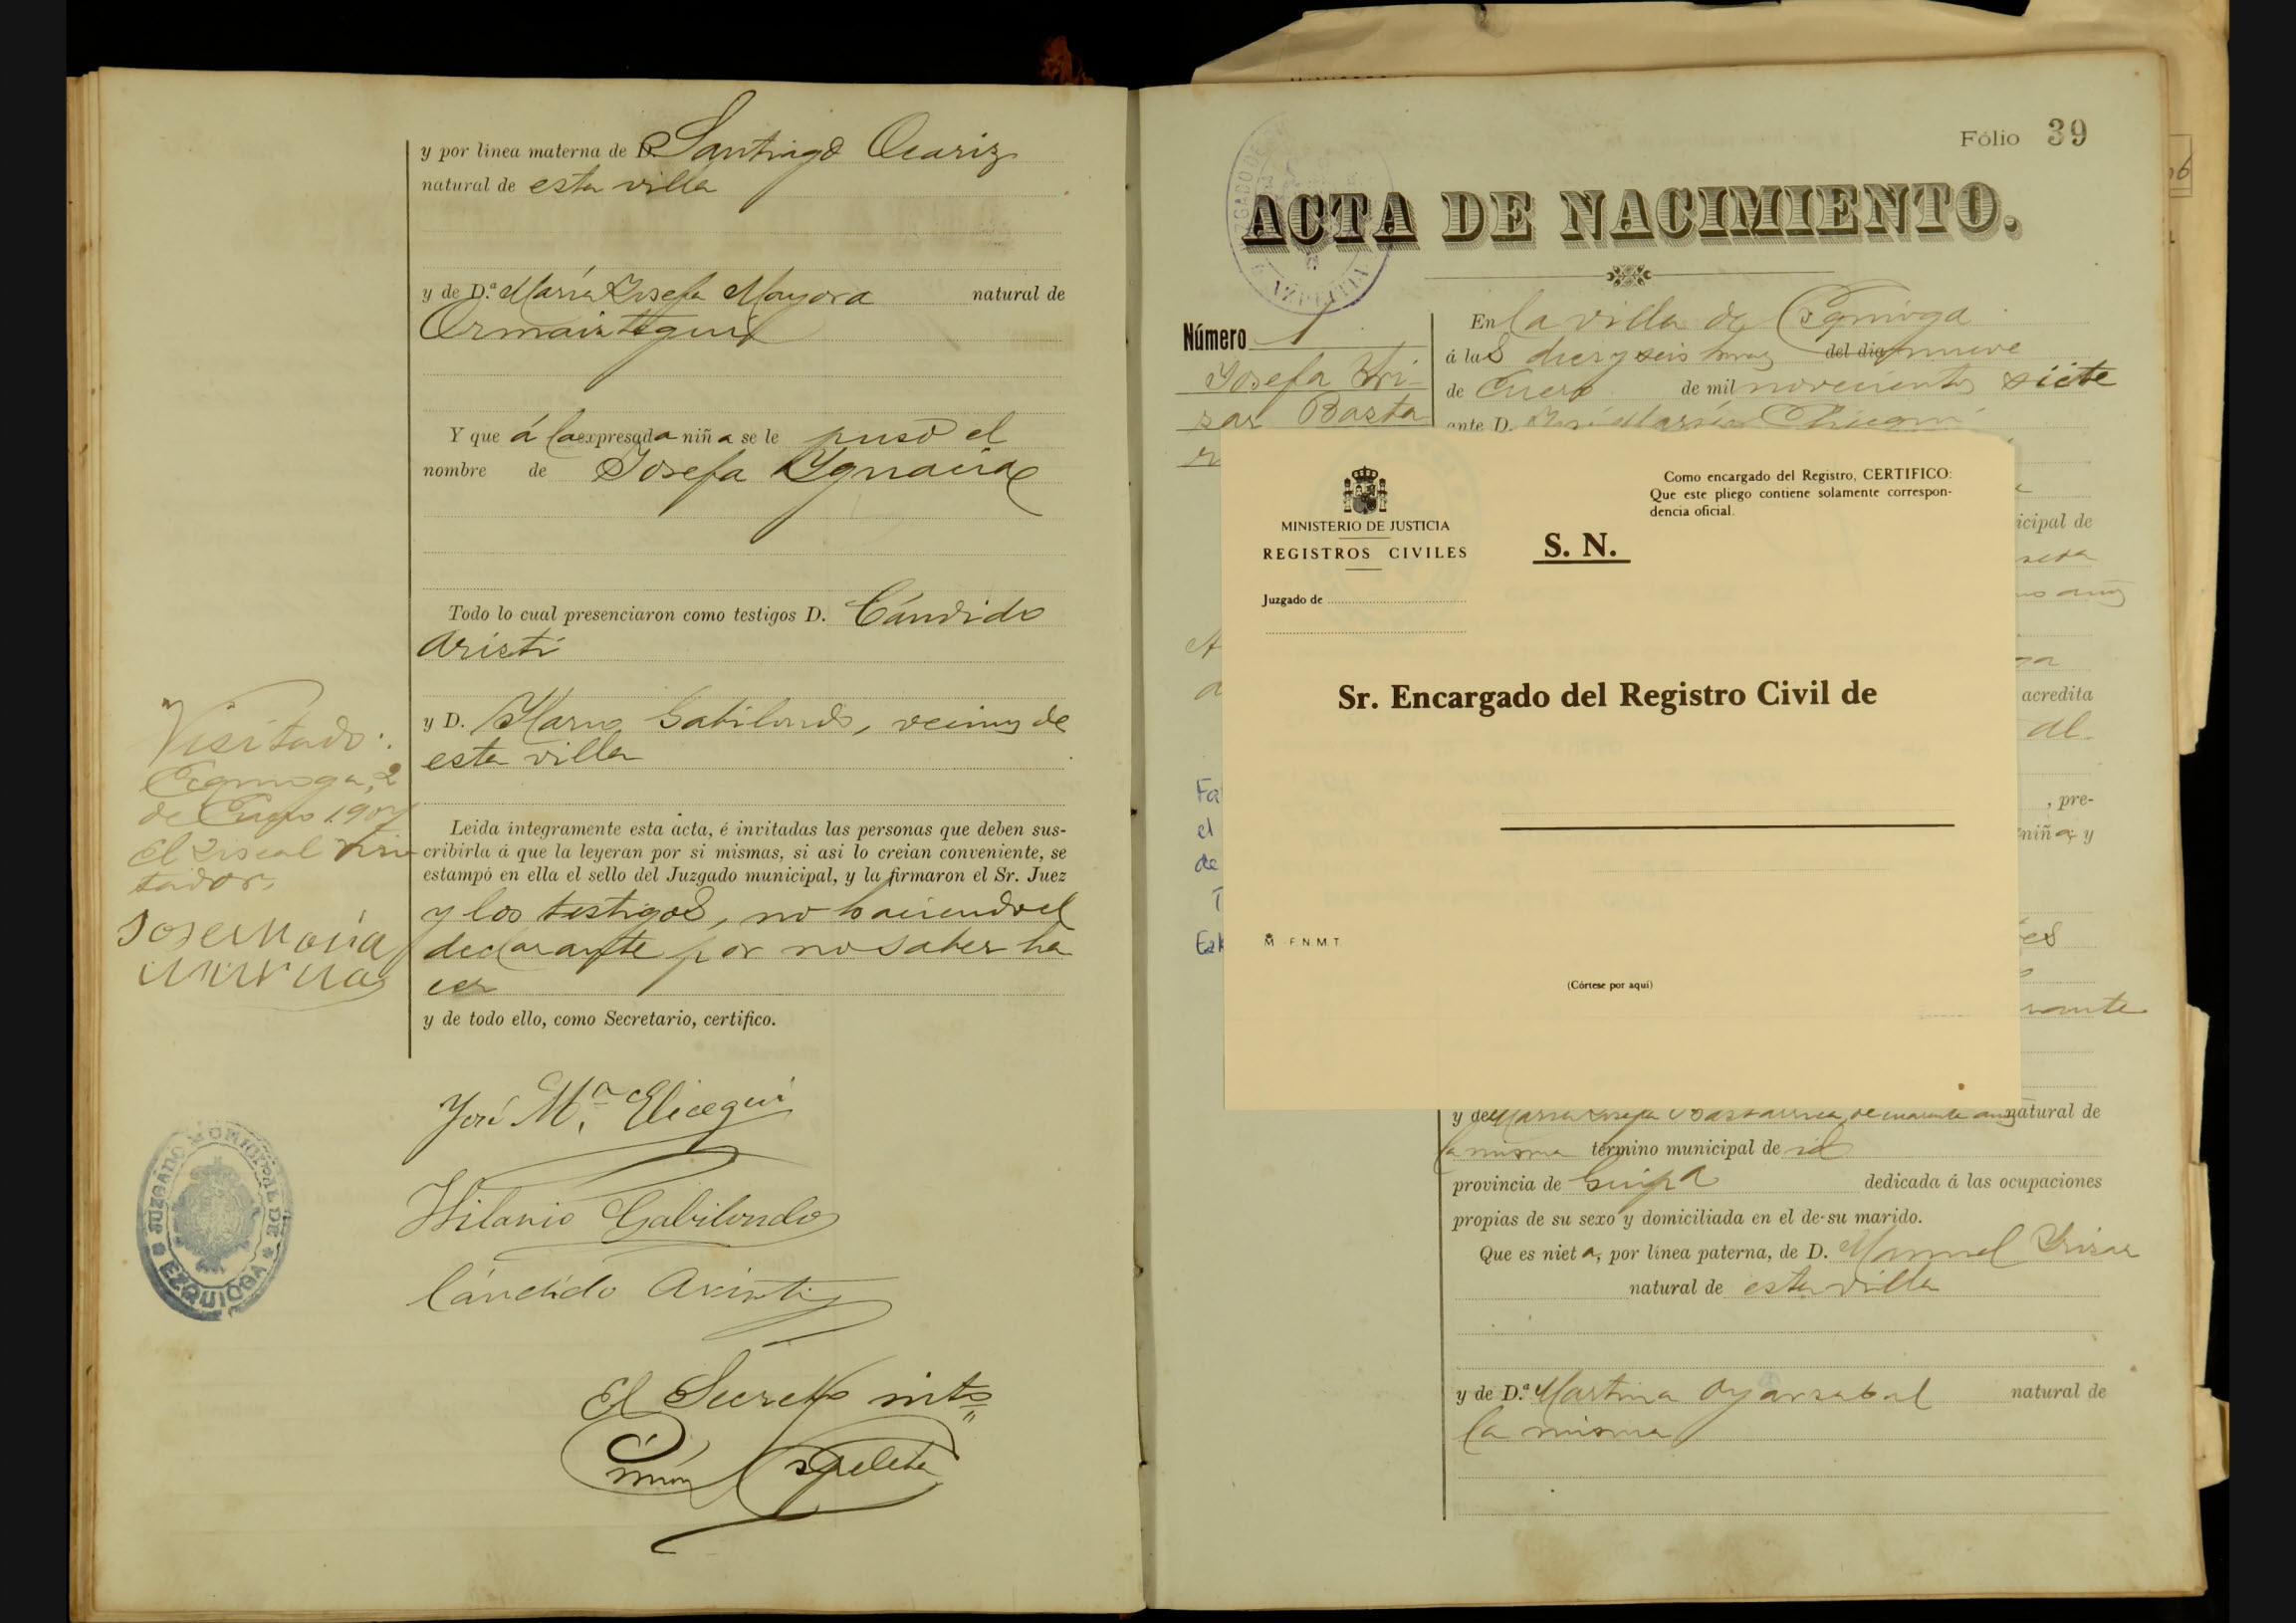 y por línea materna de D. Santiago Ocariz
natural de esta villa
y de D.ª María Josefa Mayora natural de
Ormaiztegui
Y que á la expresada niña se le puso el
nombre de Josefa Ygnacia
Todo lo cual presenciaron como testigos D. Cándido
Aristi
y D. Hilario Gabilondo, vecinos de
esta villa
Leida íntegramente esta acta, é invitadas las personas que deben sus-
cribirla á que la leyeran por si mismas, si asi lo creian conveniente, se
estampó en ella el sello del Juzgado municipal, y la firmaron el Sr. Juez
y los testigos, no haciendo el
declarante por no saber ha
cer
y de todo ello, como Secretario, certifico.
Visitado.
Ezquioga, 2
de Enero 1907
El Fiscal Visi
tador,
José María
José M.ª Elicegui
Hilario Gabilondo
Cándido Aristi
El Secretº intº
JUZGADO MUNICIPAL DE
EZQUIOGA
Fólio 39
ACTA DE NACIMIENTO.
Número 1
Josefa Iri-
zar Basta
En la villa de Ezquioga
á las diez y seis horas del dia nueve
de Enero de mil novecientos siete
ante D. José María Elicegui
icipal de
acredita
al
, pre-
niña y
Fa
el
de
T
Ezk
MINISTERIO DE JUSTICIA
REGISTROS CIVILES
Juzgado de
S. N.
Como encargado del Registro, CERTIFICO:
Que este pliego contiene solamente correspon-
dencia oficial.
Sr. Encargado del Registro Civil de
F N M T
(Córtese por aquí)
y de María Josefa Bastarrica, de cuarenta años natural de
la misma término municipal de id
provincia de Guipª dedicada á las ocupaciones
propias de su sexo y domiciliada en el de su marido.
Que es nieta, por línea paterna, de D. Manuel Irizar
natural de esta villa
y de D.ª Martina Oyarzabal natural de
la misma